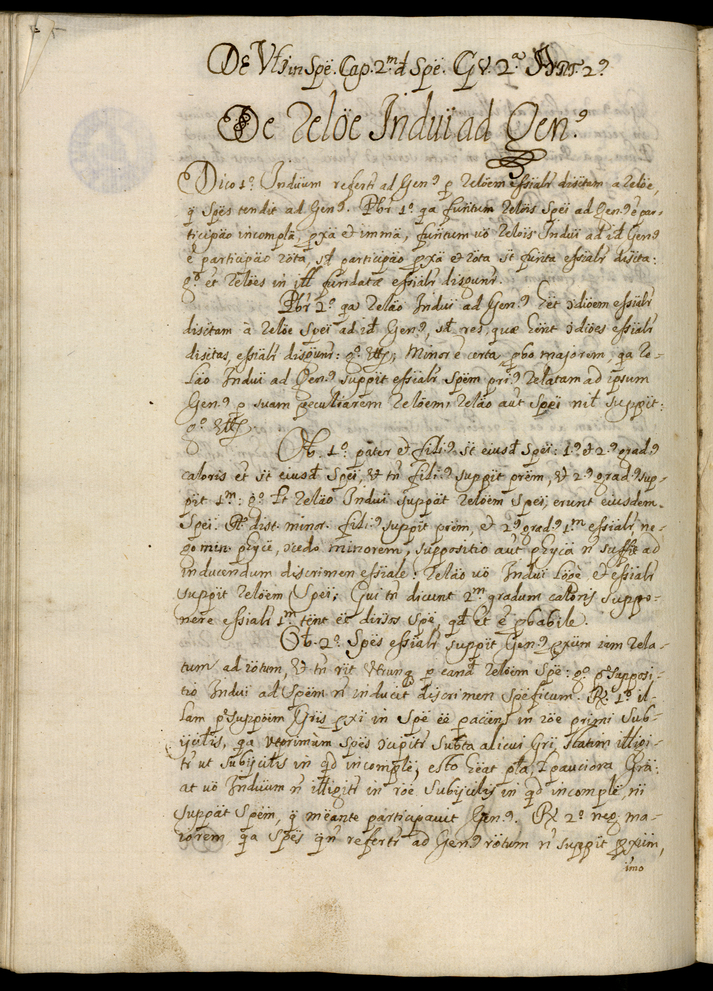 De Vlī in Spē. Cap. 2m. d Spē. Q. V. 2a Art. 2°
De Relōe Induī ad Gen.9
Dico 1°. Indūum referri ad Gen9 p Relōem essīalr distctam a relōe,
q̄ Spēs tendit ad Gen9. Pbr 1° qa fun̄tum relōis Spēi ad Gen9 ē par-
ticipāo incomplā, pxā et immā, fun̄tum vō relōis Induī ad id Gen9
ē participāo rōta, sd participāo pxā et rōta st̄ fun̄ta essīalr distcta:
g° et relōes in ill fundatæ essīalr disgunr.
Pbr 2° qa relāo Induī ad Gen9 hēt ɔdiōem essīalr
distctam à relōe Spēi ad id Gen9, sd res, quæ hēnt ɔdiōes essīalr
distctas, essīalr disgunr: g° Minor ē certa pbo majorem, qa re-
lāo Induī ad Gen9 suppīt essīalr Spēm pri9 relatam ad ipsum
Gen9 p suam peculiarem relōem; relāo aut Spēi nil suppīt:
g°
Ob. 1° pater et fili9 st̄ eiusd Spēi: 1° et 2° grad9
caloris et st̄ eiusd Spēi, & tn fili9 suppīt prēm, & 2° grad9 sup-
pīt 1m: g° Lt relāo Induī suppāt relōem Spēi, erunt eiusdem
Spēi. R. dist. minor. fili9 suppīt prēm, et 2° grad9 1m essīalr, ne-
go min. phycē, ɔcedo minorem, suppositio aut phycā n̄ suffīt ad
inducendum discrimen essīale: relāo vō Induī Logē et essīalr
suppīt relōem Spēi; Qui tn dicunt 2m gradum caloris suppo-
nere essīalr 1m, tēnt ēē divsos Spē, qd et ē pbabile.
Ob. 2° Spēs essīalr suppīt Gen9 pxūm iam rela-
tum ad rōtum, & tn rīt utrunq p eand relōem Spē: g° pSupposi-
tio Induī ad Spēm n̄ inducit discrimen Spēficum. R. 1° il-
lam pSuppōim Gris pxi in Spē ēē pacien, in rōe primi Sub-
ijcilis, qa utprimùm Spēs ɔcipitr Subta alicui Gri, statim illigi-
tr ut Subijcilis in qd incomplē, esto hēat pla, l pauciora Gra:
at vō Indūum n̄ illigitr in rōe Subijcilis in qd incomplē, nī
suppāt Spēm, q̄ mēante participavit Gen9. R. 2° neg. ma-
iorem, qa Spēs qn refertr ad Gen9 rōtum n̄ suppīt pxūm,
imo